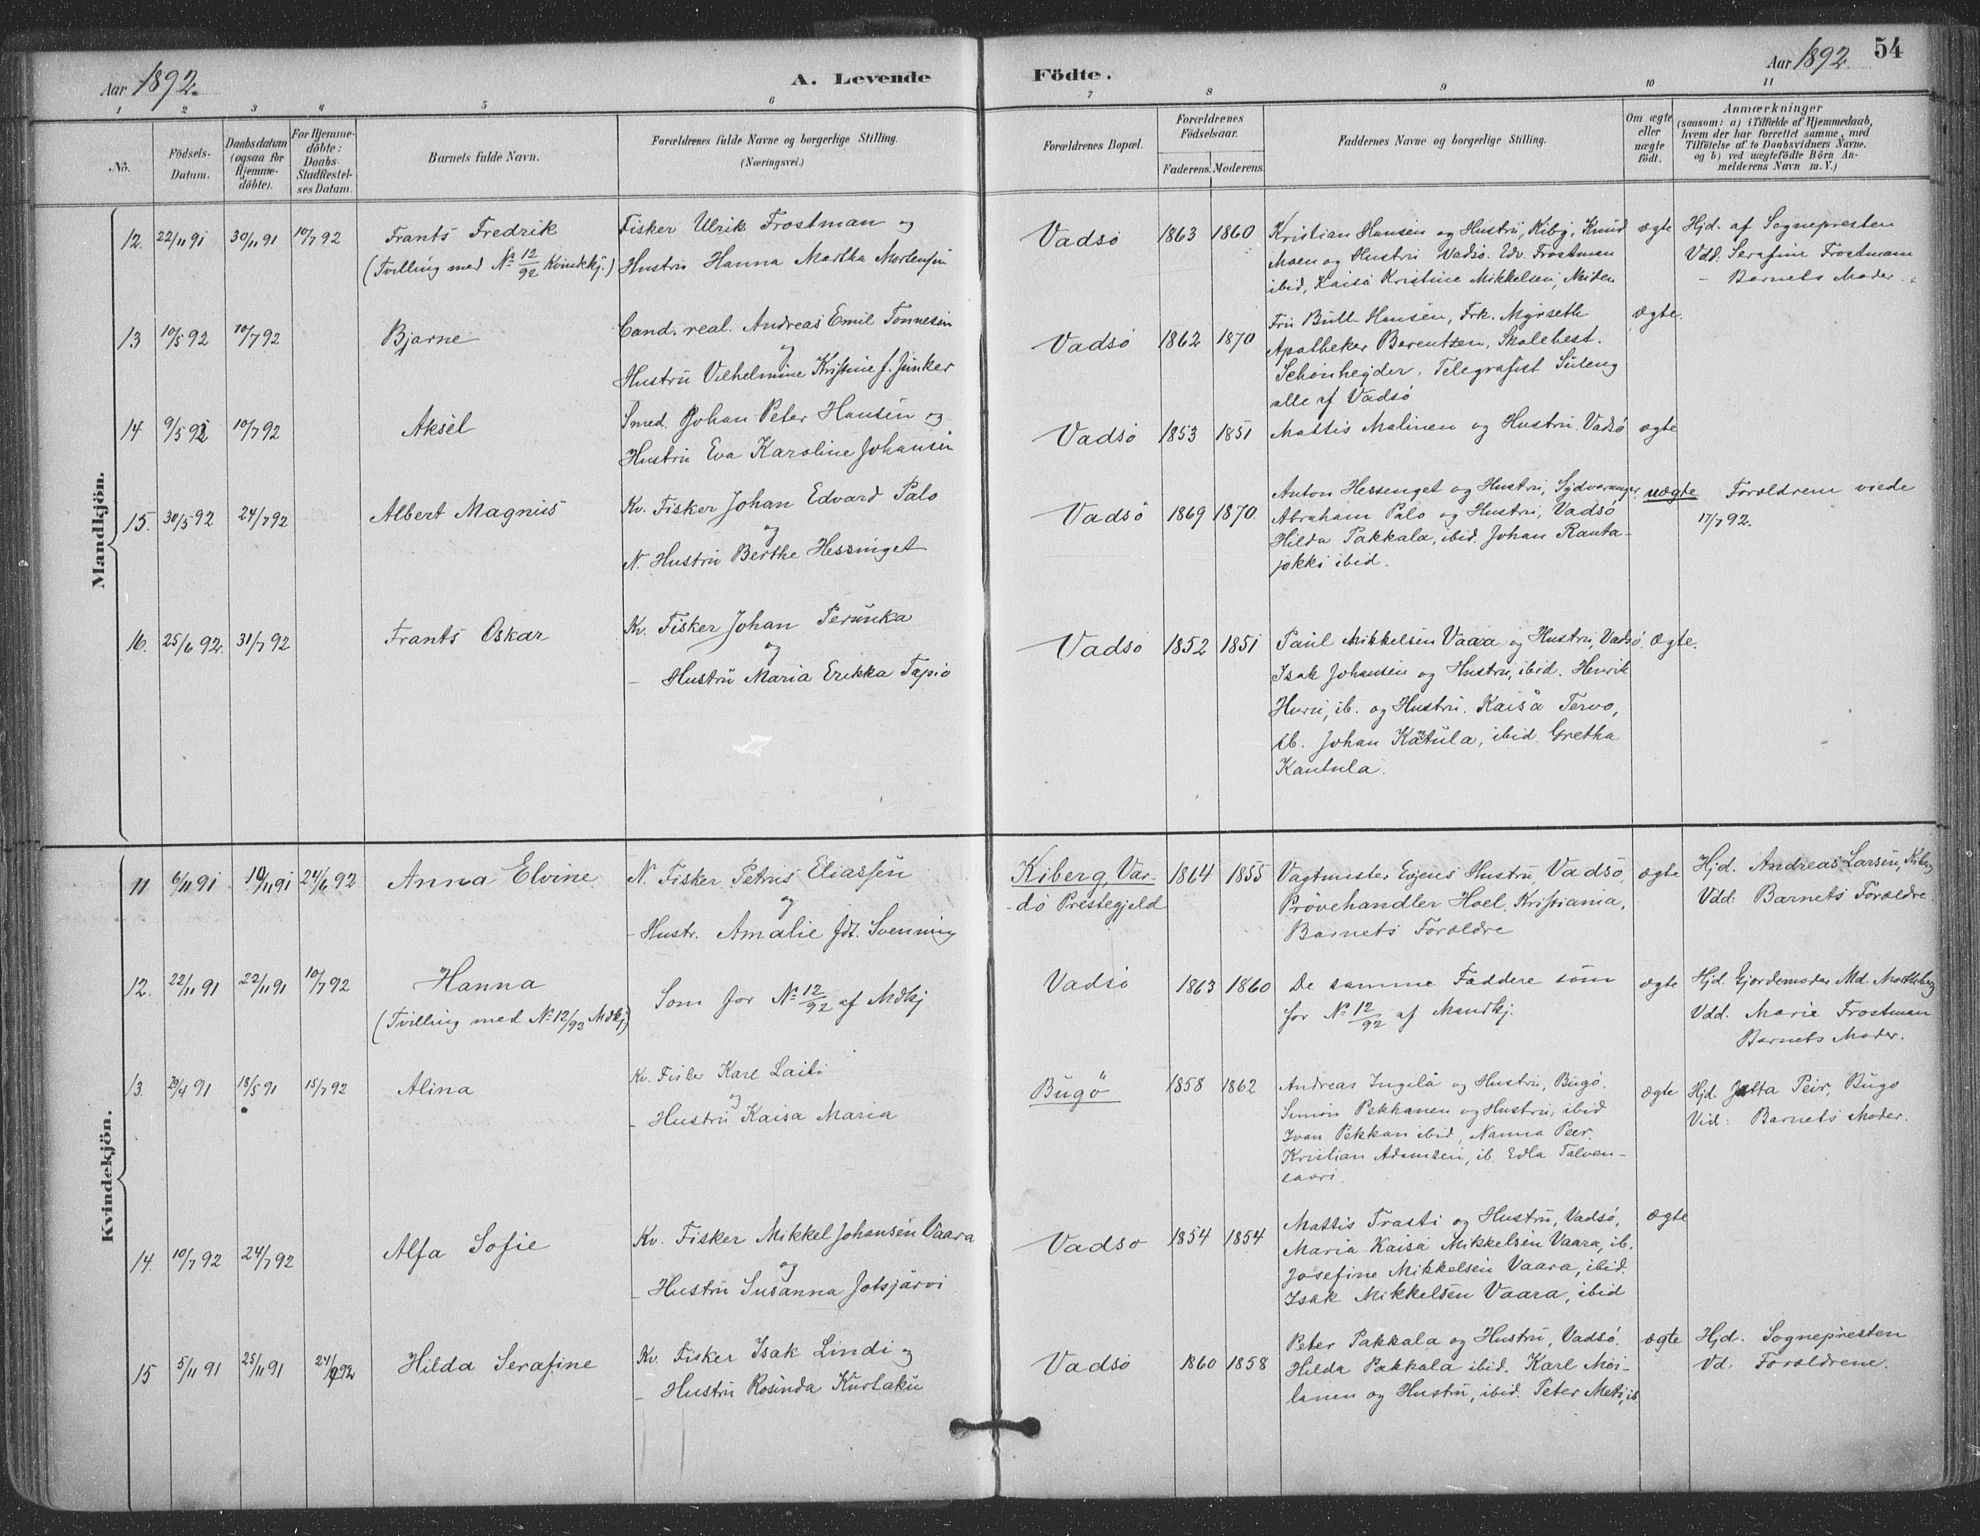 Aar 1892.
A. Levende
Födte.
Aar 1892
54
1
2
3
4
5
6
7
8
9
10
11
No.
Födsels-
Datum.
Daabsdatum
(ogsaa for
Hjemme-
döbte).
For Hjemme-
döbte:
Daabs-
Stadfæstel-
ses Datum.
Barnets fulde Navn.
Forældrenes fulde Navne og borgerlige Stilling.
(Næringsvei.)
Forældrenes Bopæl.
Forældrenes
Födselsaar.
Faderens.
Moderens.
Faddernes Navne og borgerlige Stilling.
Om ægte
eller
uægte
födt.
Anmærkninger
(saasom: a) i Tilfælde af Hjemmedaab,
hvem der har forrettet samme, med
Tilföielse af to Daabsvidners Navne.
og b) ved uægtefödte Börn An-
melderens Navn m. V.)
Mandkjön.
12. 22/11 91 30/11 91 10/7 92
Frants Fredrik
(Tvilling med No 12/92 Kvindekj.)
Fisker Ulrik Frostman og
Hustru Hanna Martha Mortensen
Vadsö 1863 1860
Kristian Hansen og Hustru, Kibg, Knud
Moen og Hustru Vadsö. Edv. Frostman
ibid, Kaisa Kristine Mikkelsen,
ægte
Hjd. af Sognepresten
Vdd. Serafine Frostmann
– Barnets Moder.
13 10/5 92 10/7 92
Bjarne
Cand. real. Andreas Emil Tönnesen
og
Hustru Vilhelmine Kristine f. Junker
Vadsö 1862 1870
Fru Bull-Hansen, Frk. Myrseth
Apotheker Barentzen, Skolebest.
Schönheyder, Telegrafist
alle af Vadsö
ægte.
14 9/5 92 10/7 92
Aksel
Smed. Johan Peter Hansen og
Hustru Eva Karoline Johansen
Vadsö 1853 1851
Mattis Malinen og Hustru, Vadsö
ægte
15. 30/5 92 24/7 92
Albert Magnus
Kv. Fisker Johan Edvard Palo
og
N. Hustru Berthe Hessinget
Vadsö 1869 1870.
Anton Hessenget og Hustru, Sydvaranger
Abraham Palo og Hustru, Vadsö
Hilda Pakkala, ibid. Johan Ranta-
jokki ibid.
uægte
Forældrene viede
17/7 92.
16. 25/6 92. 31/7 92
Frants Oskar
Kv. Fisker Johan Perunka
og
– Hustru Maria Erikka Tapio
Vadsö 1852 1851
Paul Mikkelsen Vaara og Hustru, Vadsö.
Isak Johansen og Hustru, ibid. Henrik
Huru, ib. og Hustru. Kaisa Tervo,
ib. Johan Kätula, ibid. Gretha
Kantula.
Ægte.
Kvindekjön.
11 6/11 91 10/11 91 24/6 92
Anna Elvine
N. Fisker Petrus Eliassen
og
– Hustr. Amalie fdt. Svenning
Kiberg, Var-
dö Prestegjeld
1864 1855
Vagtmester Hustru Vadsö,
Prövehandler Hoel, Kristiania,
Barnets Forældre
ægte
Hjd. Andreas Larsen, Kiberg
Vdd: Barnets Forældre.
12. 22/11 91 22/11 91 10/7 92
Hanna
(Tvilling med No 12/92 Mdkj)
Som for No 12/92 af Mdkj
Vadsö 1863 1860
De samme Faddere som
for No 12/92 af Mandkj.
ægte
Hjd. Gjordemoder Md.
Vdd. Marie Frostman
Barnets Moder.
13. 29/4 91 18/5 91 15/7 92
Alina
Kv. Fisker Karl Laiti
og
– Hustru Kaisa Maria
Bugö 1858 1862
Andreas Ingilä og Hustru, Bugö.
Simon Pekkanen og Hustru, ibid
Ivan Pekkan ibid, Nanna Peer.
Kristian Adamsen, ib. Edla Talven-
saari.
ægte
Hjd. Jatta Peir, Bugö
Vid: Barnets Moder.
14. 10/7 92 24/7 92
Alfa Sofie
Kv. Fisker Mikkel Johansen Vaara
og
– Hustru Susanna Jotsjärvi
Vadsö 1854 1854
Mattis Trasti og Hustru, Vadsö,
Maria Kaisa Mikkelsen Vaara, ib.
Josefine Mikkelsen Vaara, ibid.
Isak Mikkelsen Vaara, ibid
ægte
15 5/11 91 25/11 91 24/7 92
Hilda Serafine
Kv. Fisker Isak Lindi og
– Hustru Rosinda Kurtaku
Vadsö 1860 1858
Peter Pakkala og Hustru, Vadsö.
Hilda Pakkala ibid. Karl Moi-
lanen og Hustru, ibid. Peter Meti, ib.
ægte
Hjd. Sognepresten
Vd. Forældrene.